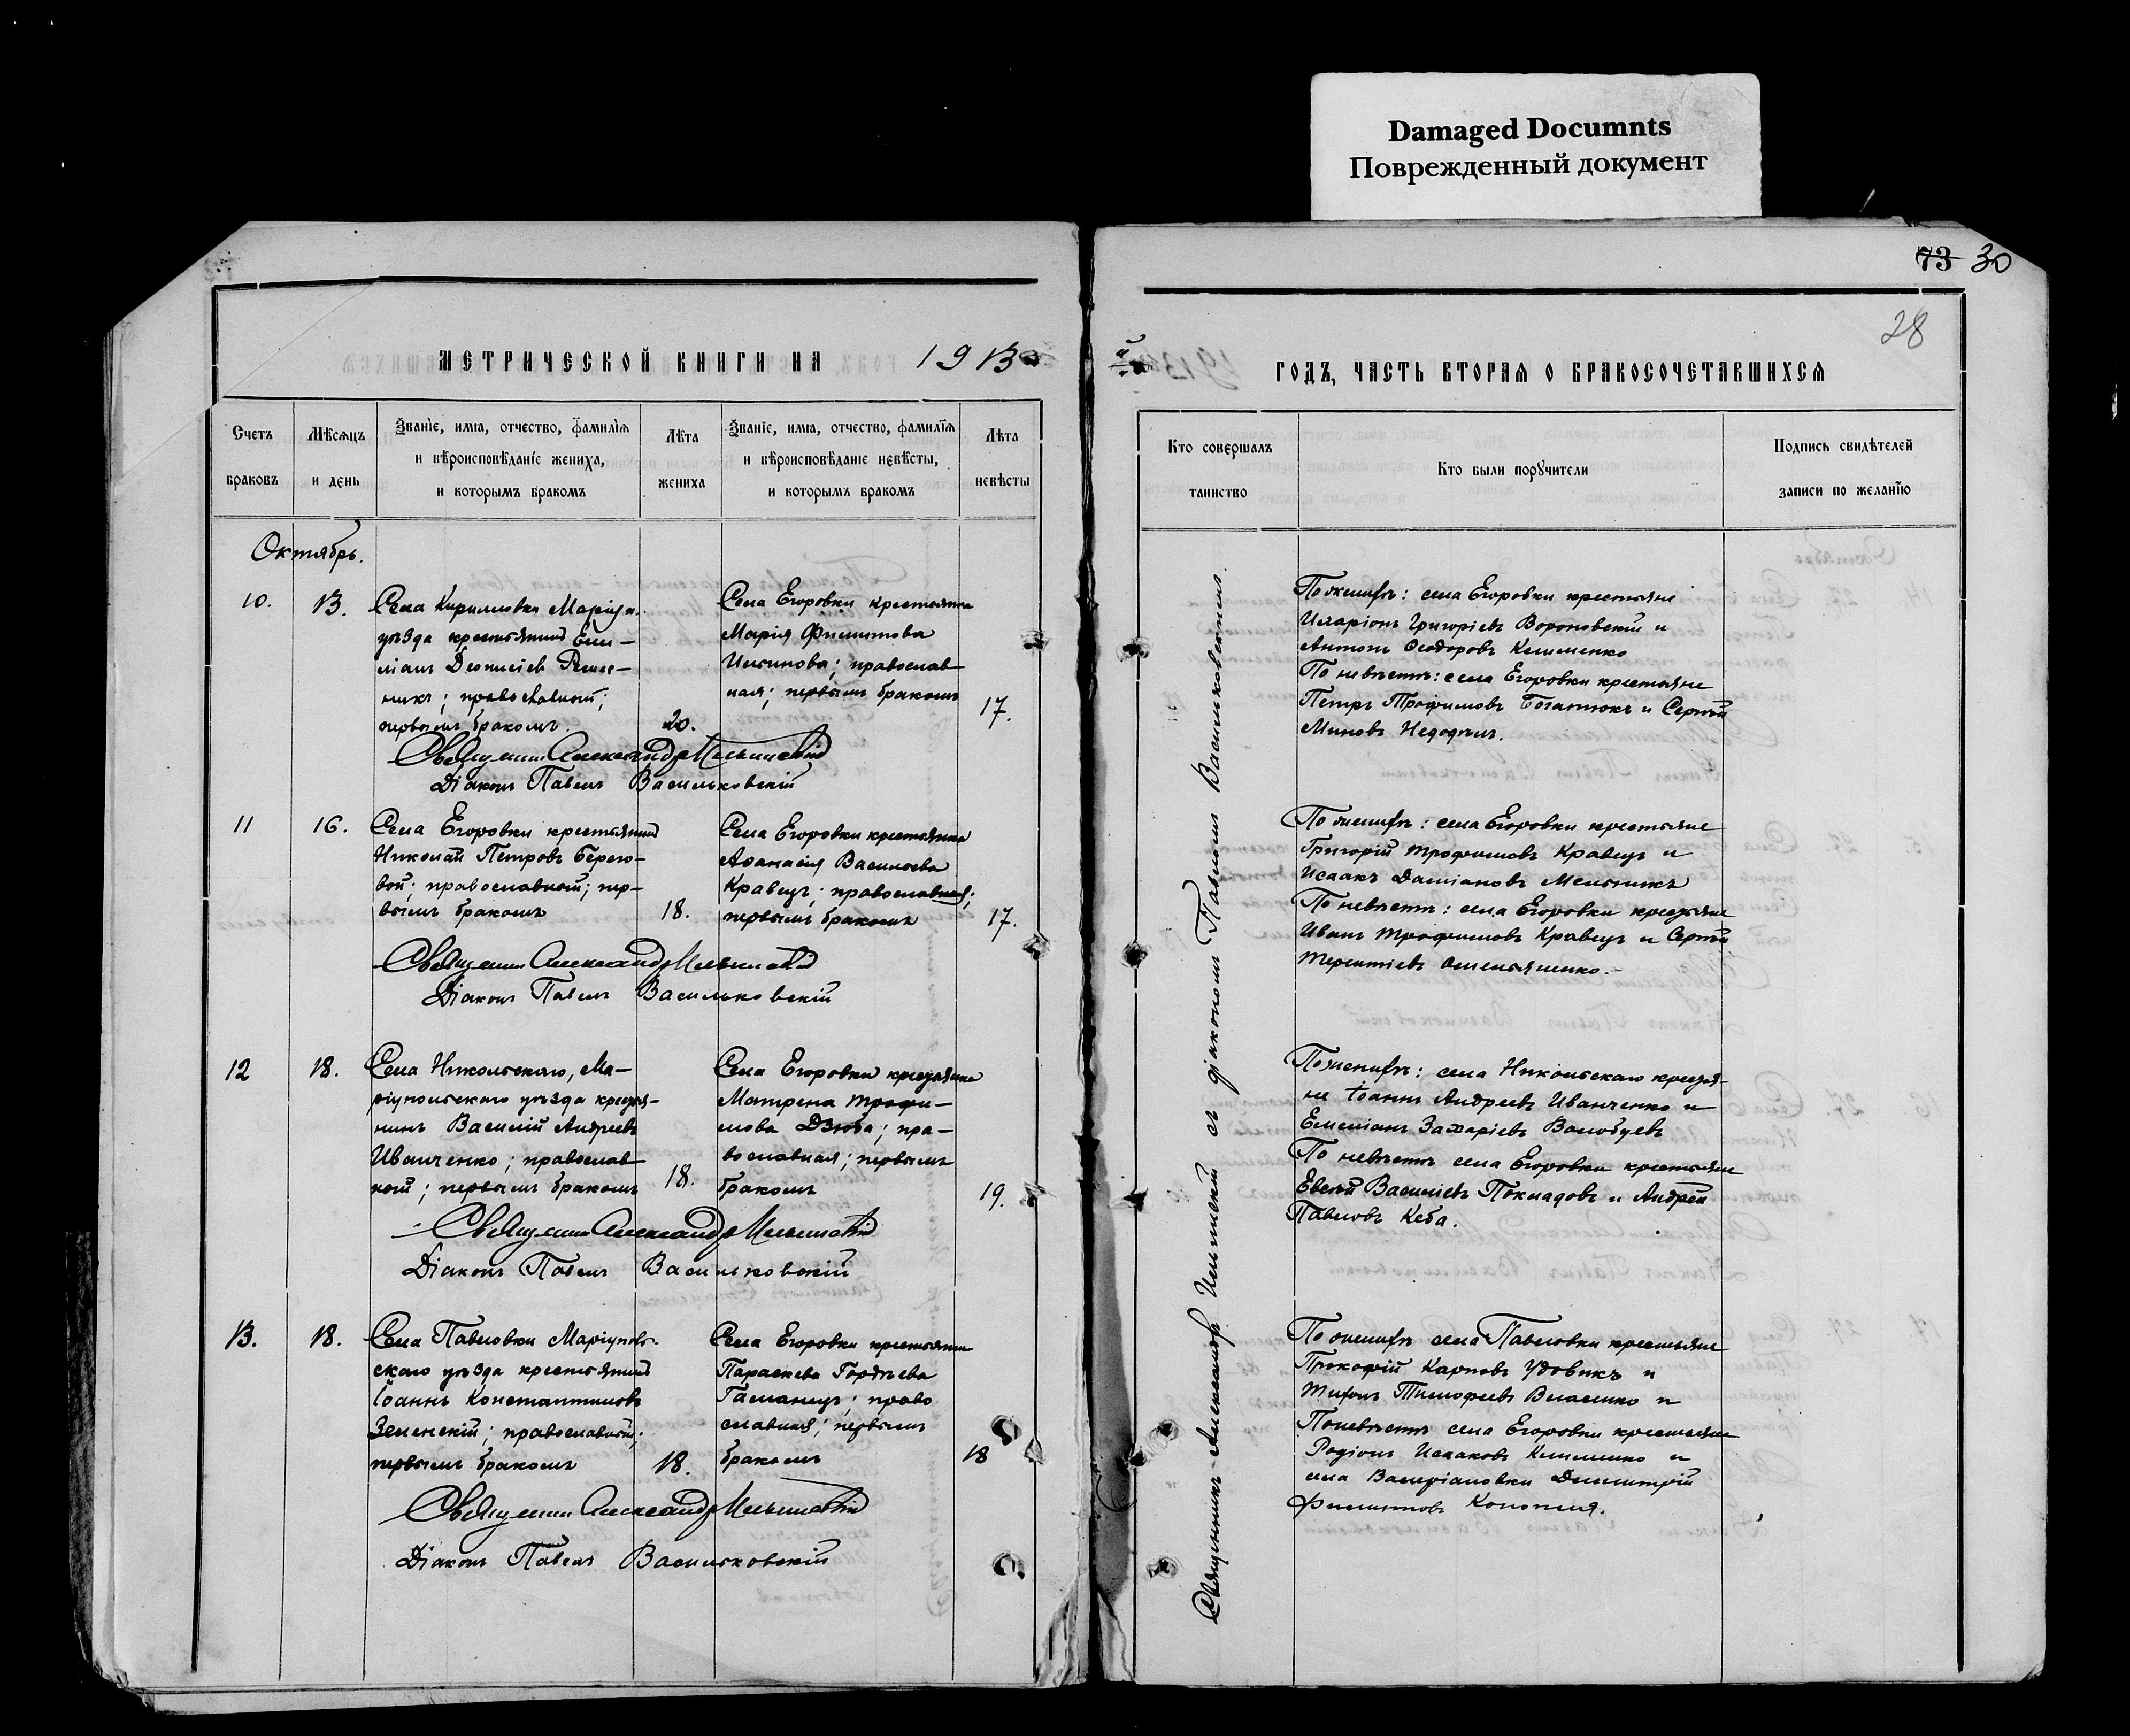 Damaged Documnts
Поврежденный документ
73 30
28
МЕТРИЧЕСКОЙ КНИГИ НА 1913
й
ГОДЪ, ЧАСТЬ ВТОРАЯ О БРАКОСОЧЕТАВШИХСЯ
Счетъ
браковъ
Мѣсяцъ
и день
Званіе, имя, отчество, фамилія
и вѣроисповѣданіе жениха,
и которымъ бракомъ
Лѣта
жениха
Званіе, имя, отчество, фамилія
и вѣроисповѣданіе невѣсты,
и которымъ бракомъ
Лѣта
невѣсты
Кто совершалъ
таинство
Кто были поручители
Подпись свидѣтелей
записи по желанію
Октябрь.
10.
13.
Села Кирилловки Маріуп.
уѣзда крестьянинъ Еми-
ліанъ Деонисіевъ
православный;
первымъ бракомъ.
20.
Села Егоровки крестьянка
Марія Филиппова
православ
ная; первымъ бракомъ
17.
Священникъ Александръ Ильинскій
Діаконъ Павелъ Васильковскій
По женихѣ: села Егоровки крестьяне
Иларіонъ Григоріевъ Вороновскій и
Антонъ Ѳеодоровъ Клименко
По невѣстѣ: села Егоровки крестьяне
Петръ Трофимовъ Богатюкъ и Сергѣй
Миновъ
11
16.
Села Егоровки крестьянинъ
Николай Петровъ Берего-
вой; православный; пер-
вымъ бракомъ
18.
Села Егоровки крестьянка
Аѳанасія Васильева
Кравецъ; православная;
первымъ бракомъ
17.
Священникъ Александръ Ильинскій
Діаконъ Павелъ Васильковскій
По женихѣ: села Егоровки крестьяне
Григорій Трофимовъ Кравецъ и
Исаакъ Даміановъ Мельникъ
По невѣстѣ: села Егоровки крестьяне
Иванъ Трофимовъ Кравецъ и Сергѣй
Терентіевъ Омельяненко.
12
18.
Села Никольскаго, Ма-
ріупольскаго уѣзда крестья-
нинъ Василій Андреевъ
Иванченко; православ
ный; первымъ бракомъ
18.
Села Егоровки крестьянка
Матрена Трофи-
мова Дзюба; пра-
вославная; первымъ
бракомъ
19.
Священникъ Александръ Ильинскій
Діаконъ Павелъ Васильковскій
По женихѣ: села Никольскаго крестья-
не Іоаннъ Андреевъ Иванченко и
Емеліанъ Захаріевъ Волобуевъ
По невѣстѣ села Егоровки крестьяне
Евсѣй Василіевъ Покладовъ и Андрей
Павловъ Кеба.
13.
18.
Села Павловки Маріуполь-
скаго уѣзда крестьянинъ
Іоаннъ Константиновъ
Зеленскій; православный;
первымъ бракомъ
18.
Села Егоровки крестьянка
Параскева Гордѣева
Гаманецъ; право
славная; первымъ
бракомъ
18
Священникъ Александръ Ильинскій
Діаконъ Павелъ Васильковскій
По женихѣ села Павловки крестьяне
Прокофій Карповъ Удовикъ и
Тимофеевъ Власенко и
По невѣстѣ села Егоровки крестьяне
Родіонъ Исааковъ Клименко и
села Валеріановки Димитрій
Филипповъ Конопля.
Священникъ Александръ Ильинскій съ діакономъ Павломъ Васильковскимъ.